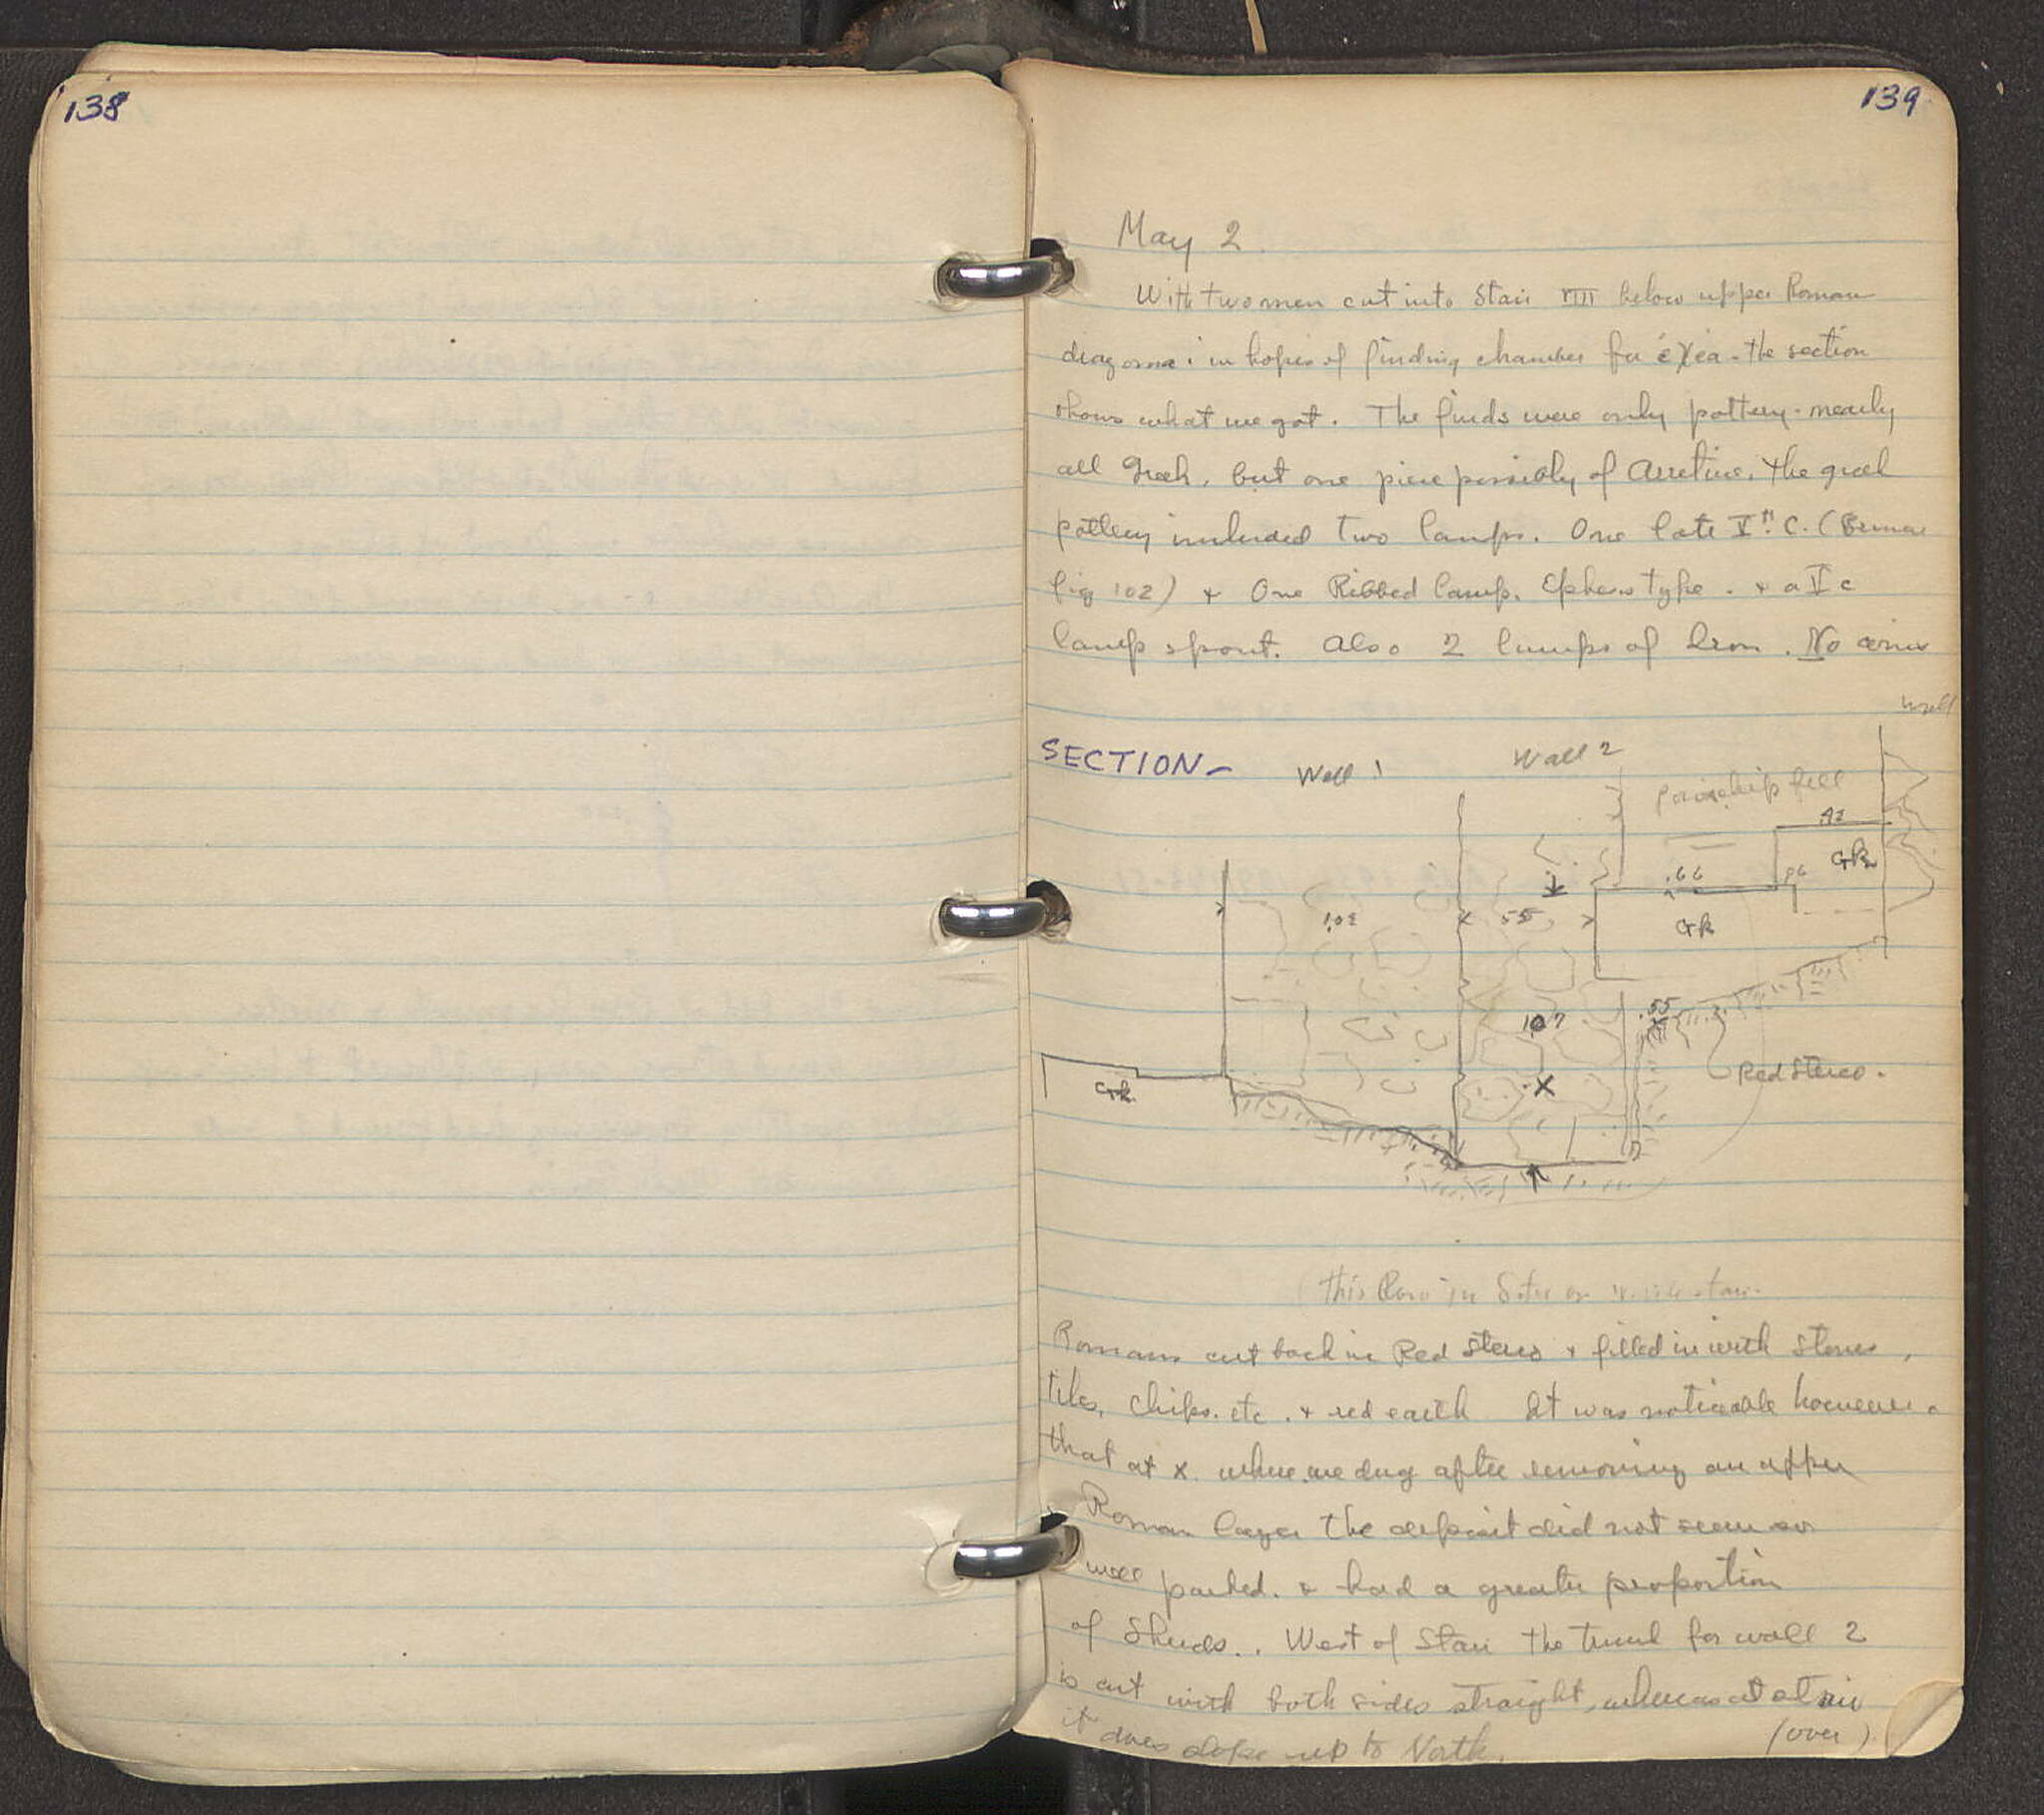 138
139
May 2
With two men cut into Stair VIII below upper Roman
in hopes of finding chamber for the section
shows what we got. The finds were only pottery - nearly
all Greek, but one piece possibly of Arretine. The Greek
pottery included two lamps. One late Vth. C. (
fig 102) + One Ribbed lamp. Ephesus type. + a V c
lamp spout. Also 2 lumps of Iron. No coins
Well
SECTION-
Wall 1
Wall 2
fill
.42
Grk
.66
1.02
55
Grk
107
.55
X
Red Stereo.
Grk
this
Romans cut back in Red Stereo + filled in with Stones,
tiles, chips. etc. + red earth It was noticeable however
that at x. where we dug after removing an upper
Roman layer the deposit did not seem so
well packed. + had a greater proportion
of Sherds.. West of Stair the tunnel for wall 2
is cut with both sides straight, whereas at stair
it does slope up to North.
(over)